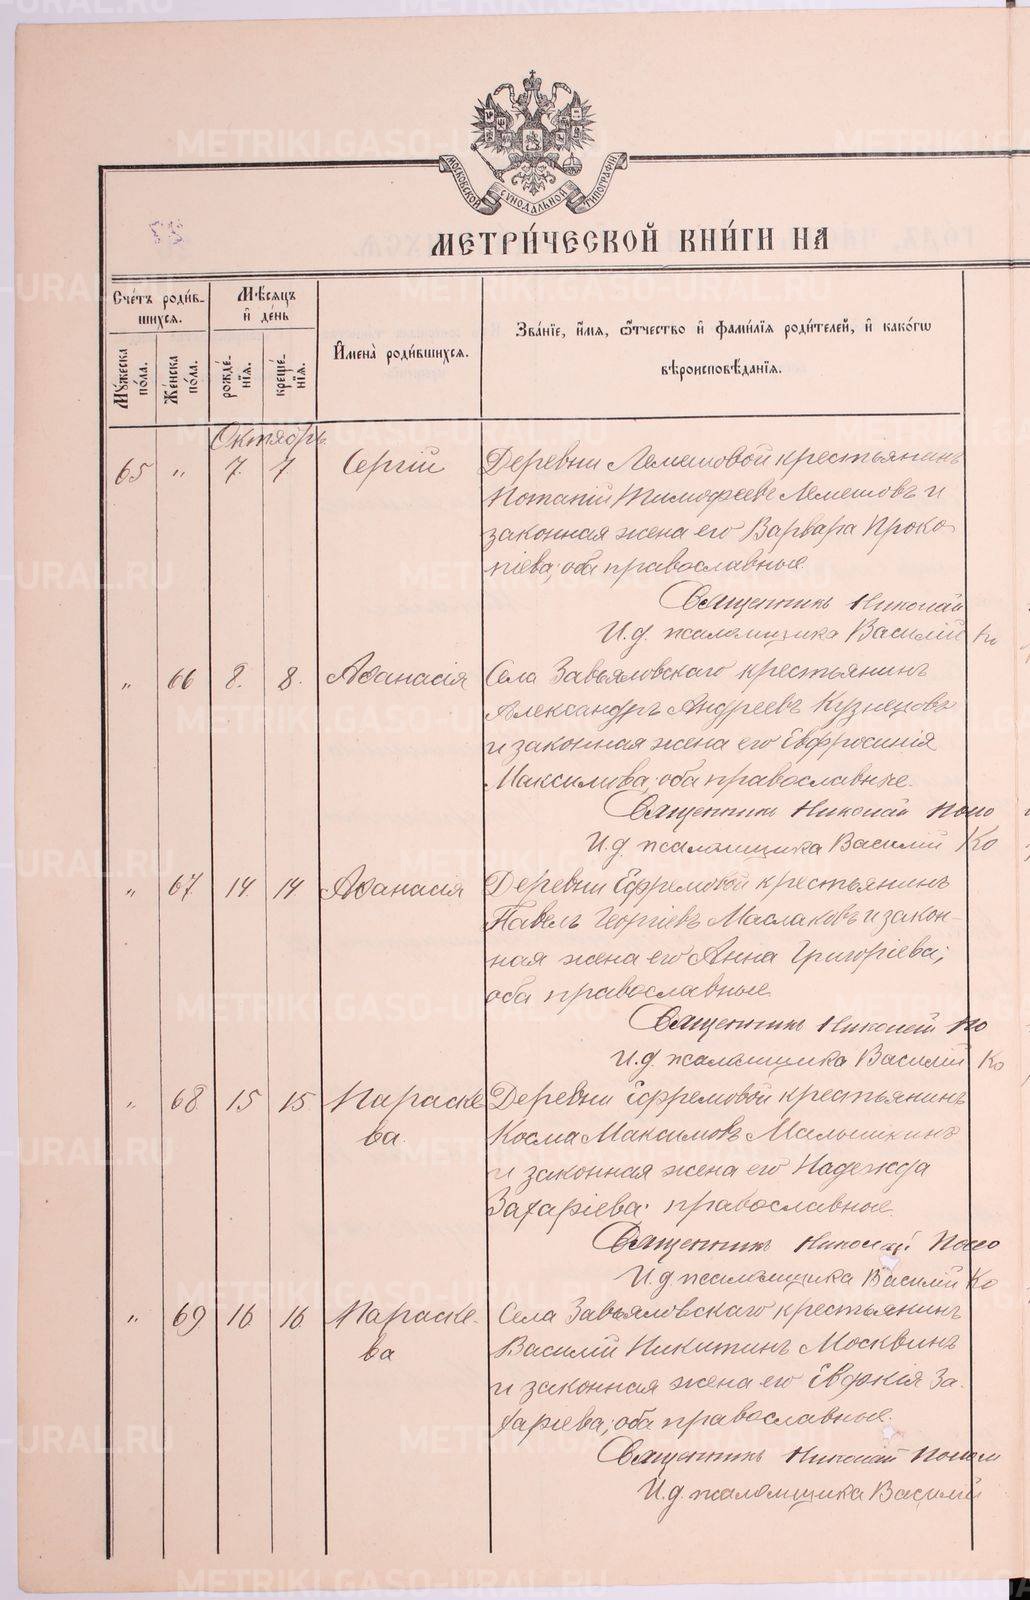 МОСКОВСКОЙ СѴНОДАЛЬНОЙ ТИПОГРАФІИ
МЕТРИ́ЧЕСКОЙ КНИ́ГИ НА
Сче́тъ роди́в-
шихся.
Мѣсяцъ
и҆ де́нь
И҆мена̀ роди́вшихся.
Зва́нїе, и҆́мя, ѻ҆́тчество и҆ фами́лїя роди́телей, и҆ како́гѡ
вѣроисповѣ́данїя.
Мꙋ́жеска
по́ла.
Же́нска
по́ла.
рожде́-
нїя.
креще́-
нїя.
Октябрь
65 " 7. 7 Сергій Деревни Лемешовой крестьянинъ
Потапій Тимофеевъ Лемешовъ и
законная жена его Варвара Проко-
піева; оба православные.
Священникъ Николай
И.д. псаломщика Василій Ко
" 66 8. 8. Аѳанасія Села Завьяловскаго крестьянинъ
Александръ Андреевъ Кузнецовъ
и законная жена его Евфросинія
Максимова; оба православные.
Священникъ Николай Попо
И.д. псаломщика Василій Ко
" 67 14. 14 Аѳанасія Деревни Ефремовой крестьянинъ
Павелъ Георгіевъ Маслаковъ и закон-
ная жена его Анна Григоріева;
оба православные
Священникъ Николай По
И.д. псаломщика Василій Ко
" 68 15 15 Параске Деревни Ефремовой крестьянинъ
ва Косма Максимовъ Малышкинъ
и законная жена его Надежда
Захаріева; православные.
Священникъ Николай Попо
И.д. псаломщика Василій Ко
" 69 16 16 Параске- Села Завьяловскаго крестьянинъ
ва Василій Никитинъ Москвинъ
и законная жена его Евдокія За-
харіева; оба православные.
Священникъ Николай
И.д. псаломщика Василій
METRIKI.GASO-URAL.RU